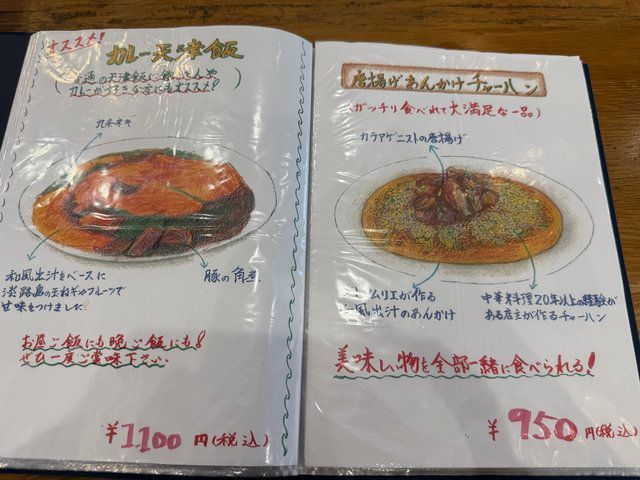 オススメ!
カレー天津飯
普通の天津飯に飽きた人や
カレーが好きな方にもオススメ!
九条ネギ
和風出汁をベースに
淡路島の玉ねぎやフルーツで
甘味をつけました
豚の角煮
お昼ご飯にも晩ご飯にも!
ぜひ一度ご賞味下さい
¥1100円(税込)
唐揚げあんかけチャーハン
(ガッチリ食べれて大満足な一品)
カラアゲニストの唐揚げ
ムリエが作る
風出汁のあんかけ
中華料理20年以上の経験が
ある店主が作るチャーハン
美味しい物を全部一緒に食べられる!
¥950円(税込)